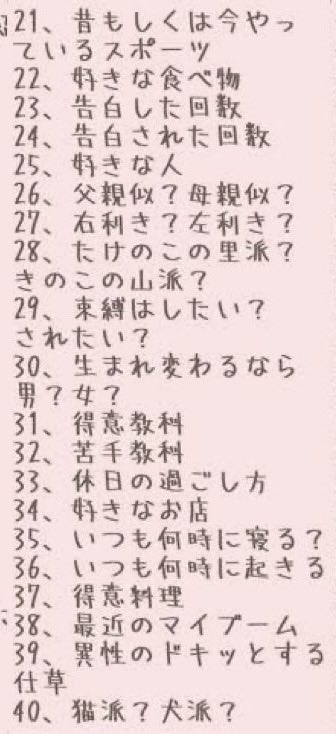 21、昔もしくは今やっ
ているスポーツ
22、好きな食べ物
23、告白した回数
24、告白された回数
25、好きな人
26、父親似？母親似？
27、右利き？左利き？
28、たけのこの里派？
きのこの山派？
29、束縛はしたい？
されたい？
30、生まれ変わるなら
男？女？
31、得意教科
32、苦手教科
33、休日の過ごし方
34、好きなお店
35、いつも何時に寝る？
36、いつも何時に起きる
37、得意料理
38、最近のマイブーム
39、異性のドキッとする
仕草
40、猫派？犬派？